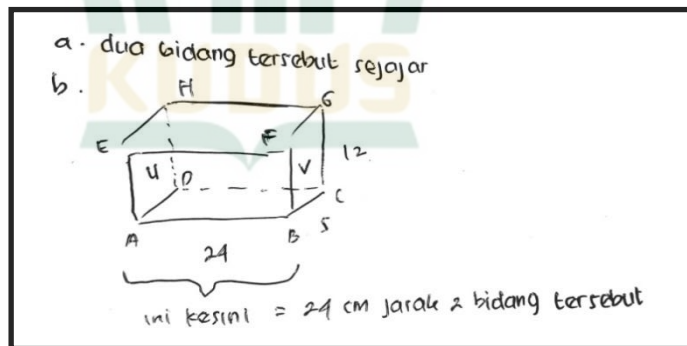 a. dua bidang tersebut sejajar
b.
H
G
E
F
12
U
V
D
C
A
B
5
24
ini kesini = 24 cm jarak 2 bidang tersebut
KUDUS